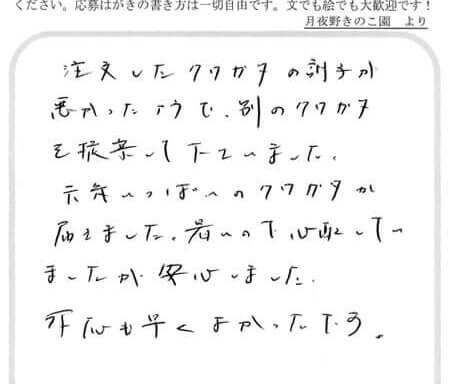 ください。応募はがきの書き方は一切自由です。文でも絵でも大歓迎です！
月夜野きのこ園　より
注文したクワガタの調子が
悪かったようで、別のクワガタ
を提案して下さいました。
元気いっぱいのクワガタが
届きました。暑いので心配してい
ましたが安心しました。
対応も早くよかったです。